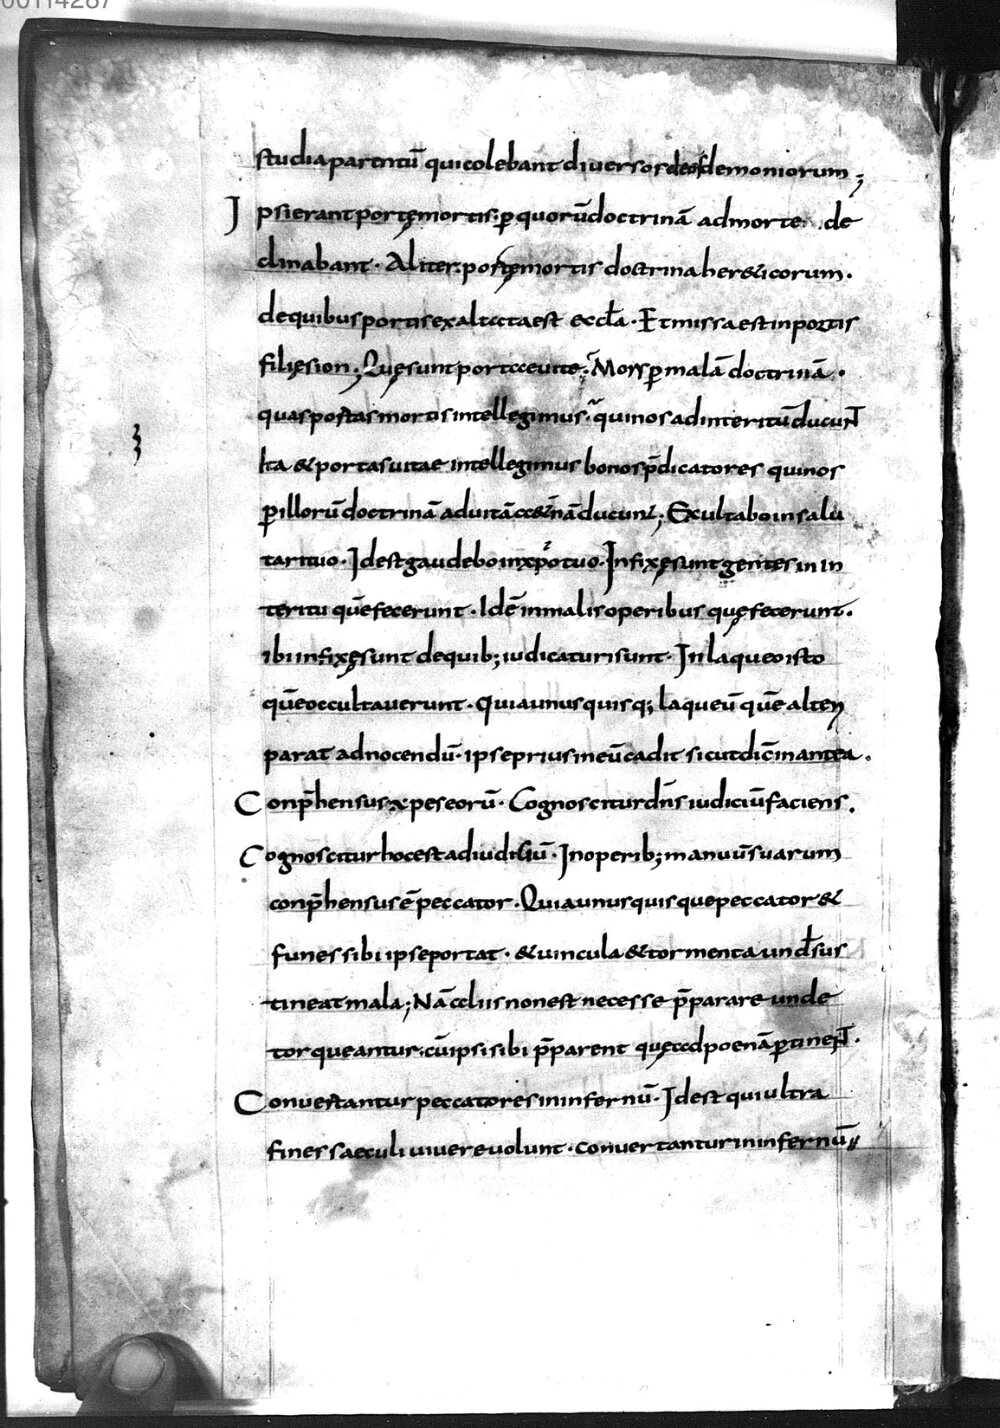 00114287
studia parentũ qui colebant diversos deos demoniorum;
Ipsi erant portę mortis. p̱ quorũ doctrinã ad morte de
clinabant. Aliter. portę mortis doctrina her&icorum.
de quibus portis exaltata est eccła. Et missa est in portis
filię sion; Quę sunt portae uitae; Mors p̱ malã doctrinã.
quas portas mortis intellegimus. qui nos ad interitũ ducunt
Ita & portas uitae intellegimus bonos p̄dicatores qui nos
p̱ illorũ doctrinã ad uitã aet̃nã ducunt; Exultabo in salu
tari tuo. Id est gaudebo in xp̄o tuo. Infixę sunt gentes in in
teritu quẽ fecerunt. Idẽ in malis operibus quę fecerunt.
ibi infixę sunt de quib; iudicaturi sunt. In laqueo isto
quẽ occultauerunt. Quia unusquisq; laqueũ quẽ alteri
parat ad nocendũ. ipse prius in eũ cadit sicut dic̃ in antea.
Conp̄hensus ẽ pes eorũ. Cognoscitur dñs iudiciũ faciens.
Cognoscitur hoc est ad iudiciũ. In operib; manuũ suarum
conp̄hensus ẽ peccator. Quia unusquisque peccator &
funes sibi ipse portat. & uincula & tormenta und̄ sus
tineat mala; Nã aliis non est necesse p̄parare unde
torqueantur. cũ ipsi sibi p̄parent quę ad poenã p̱tinent.
Conuertantur peccatores in infernũ. Id est qui ultra
fines saeculi uiuere uolunt. conuertantur in infernũ;